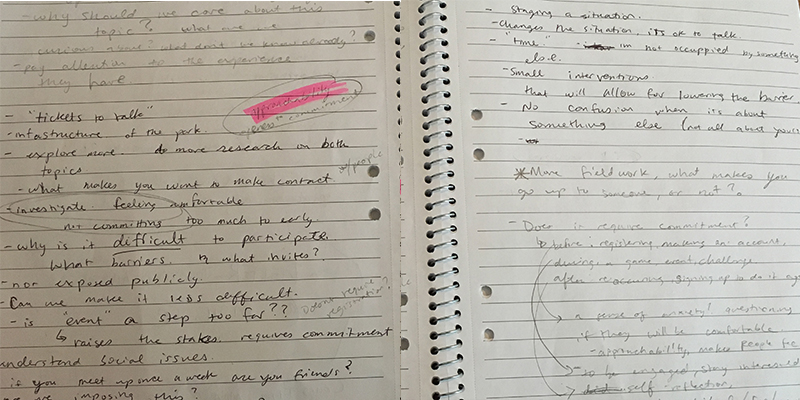 -why should we care about this
topic? what are we
curious about? what don't we know already?
-pay attention to the experience
they have.
- "tickets to talk"
-infastructure of the park.
approachability
commitment
- explore more. do more research on both
topics
*/people
-what makes you want to make contact
-investigate feeling comfortable
not committing too much to early
-why is it difficult to participate.
what barriers. & what invites?
-not exposed publicly.
-Can we make it less difficult.
Doesn't require
registration?
- is "event" a step too far??
↳ raises the stakes. requires commitment
understand social issues.
if you meet up once a week are you friends?
imposing this?
- Staging a situation.
-Changes the situation. it's ok to talk
- "time" im not occuppied by something
else.
-Small interventions
that will allow for lowering the barrier
- No confusion when it's about
something else (not all about you!)
*More fieldwork, what makes you
go up to someone, or not?
-Does it require commitment?
↳ before: registering, making an account,
during: a game, event, challenge
after: reoccuring, signing up to do it
↳ a sense of anxiety questioning
if they will be comfortable
-approachability, makes people
-to be engaged, stay interested
self reflection,